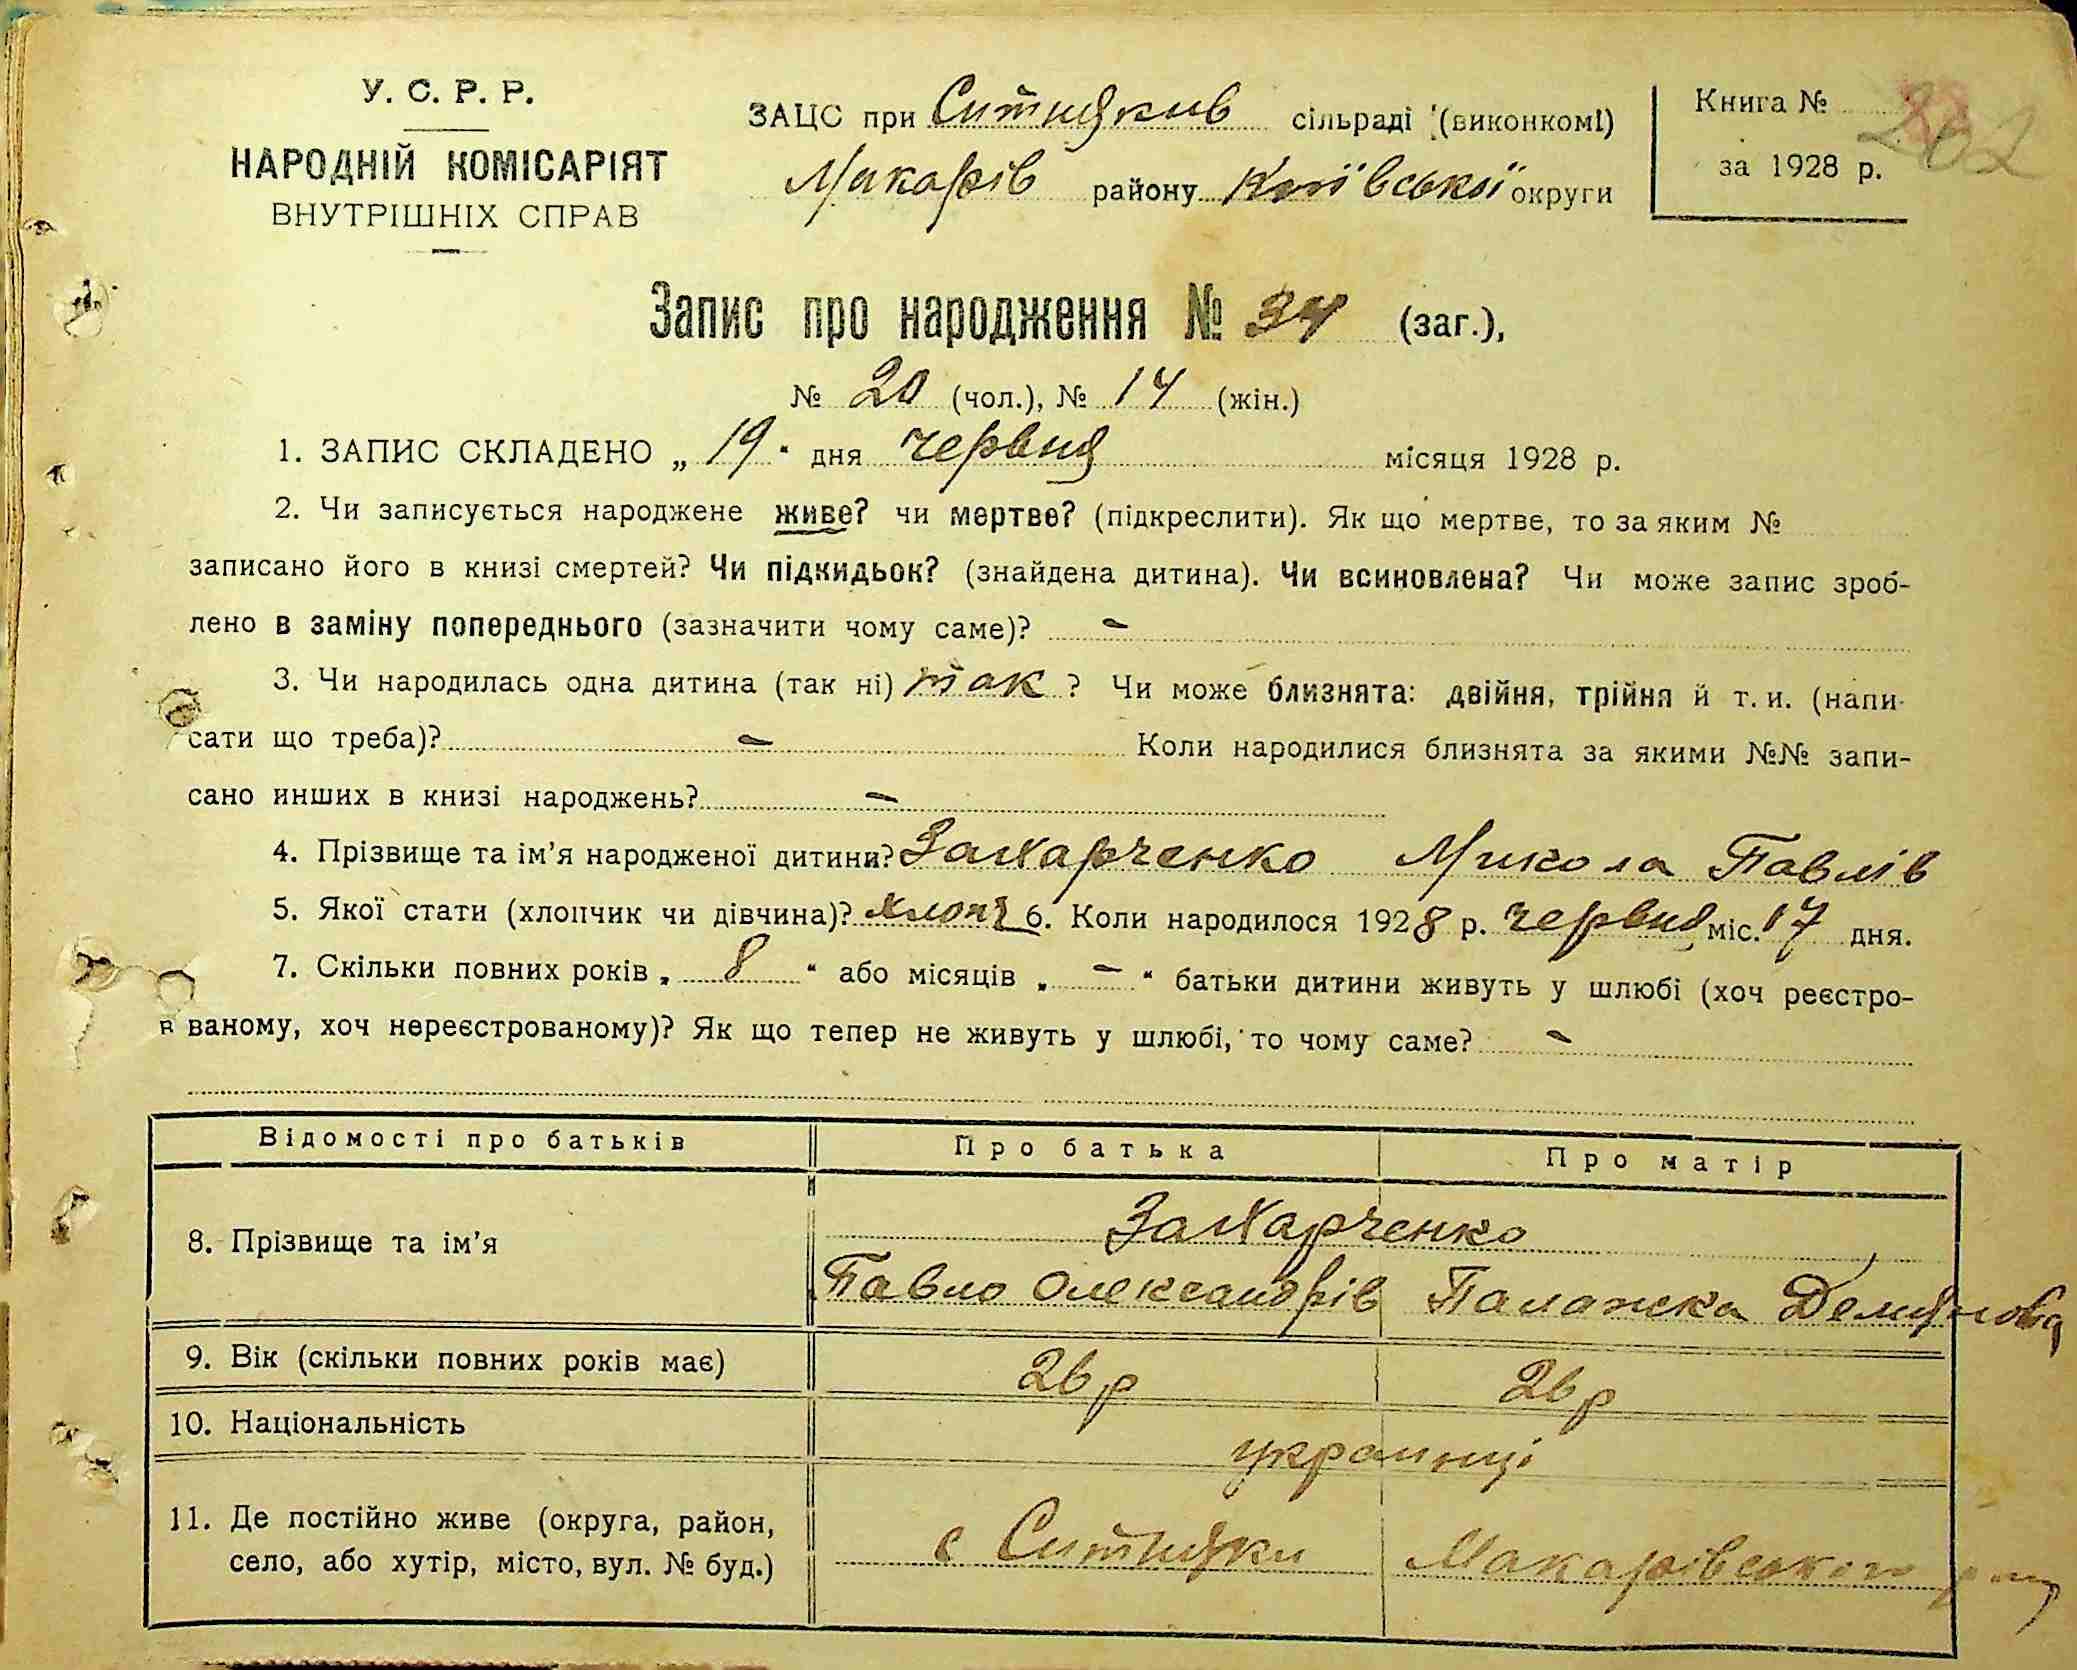 У. С. Р. Р.
НАРОДНІЙ КОМІСАРІЯТ
ВНУТРІШНІХ СПРАВ
ЗАЦС при Ситняків сільраді (виконкомі)
Макарів району Київської округи
Книга №
за 1928 р.
202
Запис про народження № 34 (заг.),
№ 20 (чол.), № 14 (жін.)
1. ЗАПИС СКЛАДЕНО „ 19 “ дня червня місяця 1928 р.
2. Чи записується народжене живе? чи мертве? (підкреслити). Як що мертве, то за яким №
записано його в книзі смертей? Чи підкидьок? (знайдена дитина). Чи всиновлена? Чи може запис зроб-
лено в заміну попереднього (зазначити чому саме)? -
3. Чи народилась одна дитина (так ні) так ? Чи може близнята: двійня, трійня й т. и. (напи-
сати що треба)? - Коли народилися близнята за якими №№ запи-
сано инших в книзі народжень? -
4. Прізвище та ім'я народженої дитини? Захарченко Микола Павлів
5. Якої стати (хлопчик чи дівчина)? хлопч 6. Коли народилося 1928 р. червня міс. 17 дня.
7. Скільки повних років „ 8 “ або місяців „ - “ батьки дитини живуть у шлюбі (хоч реєстро-
ваному, хоч нереєстрованому)? Як що тепер не живуть у шлюбі, то чому саме? -
Відомості про батьків Про батька Про матір
8. Прізвище та ім'я Захарченко
Павло Олександрів Палажка Демянова
9. Вік (скільки повних років має) 26 р 26 р
10. Національність українці
11. Де постійно живе (округа, район,
село, або хутір, місто, вул. № буд.) с Ситняки Макарівського рну